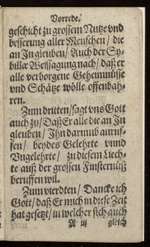 Vorrede.
geschicht zu grossem Nutze vnd
besserung aller Menschen / die
an Jn gleuben / Auch der Sy-
biller Weissagung nach / daß er
alle verborgene Geheimnüsse
vnd Schätze wölle offenbah-
ren.
Zum dritten / sagt vns Gott
auch zu / Daß Er alle die an Jn
gleuben / Jhn darumb anruf-
fen / beydes Gelehrte vnnd
Vngelehrte / zu diesem Liech-
te auß der grossen Finsternüß
beruffen wil.
Zum vierdten / Dancke ich
Gott / daß Er mich in diese Zeit
hat gesetzt / in welcher sich auch
gleich